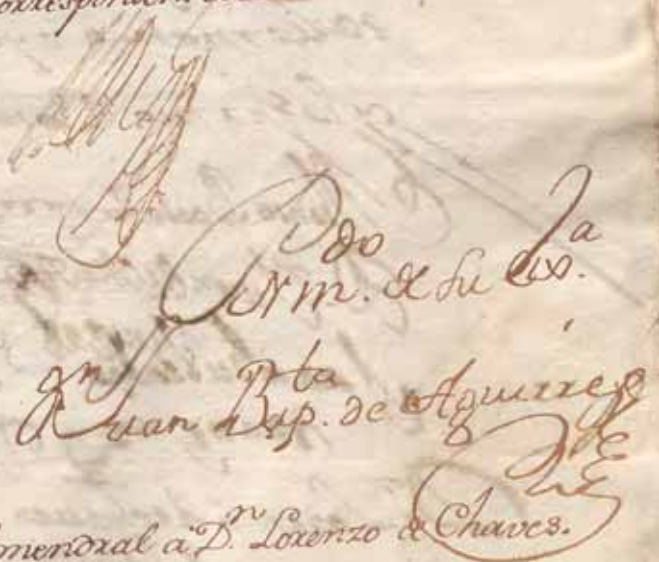 correspondient
P.r m.do de su Ex.a
Juan Bap.ta de Aguirre
mendral a D.n Lorenzo de Chaves.